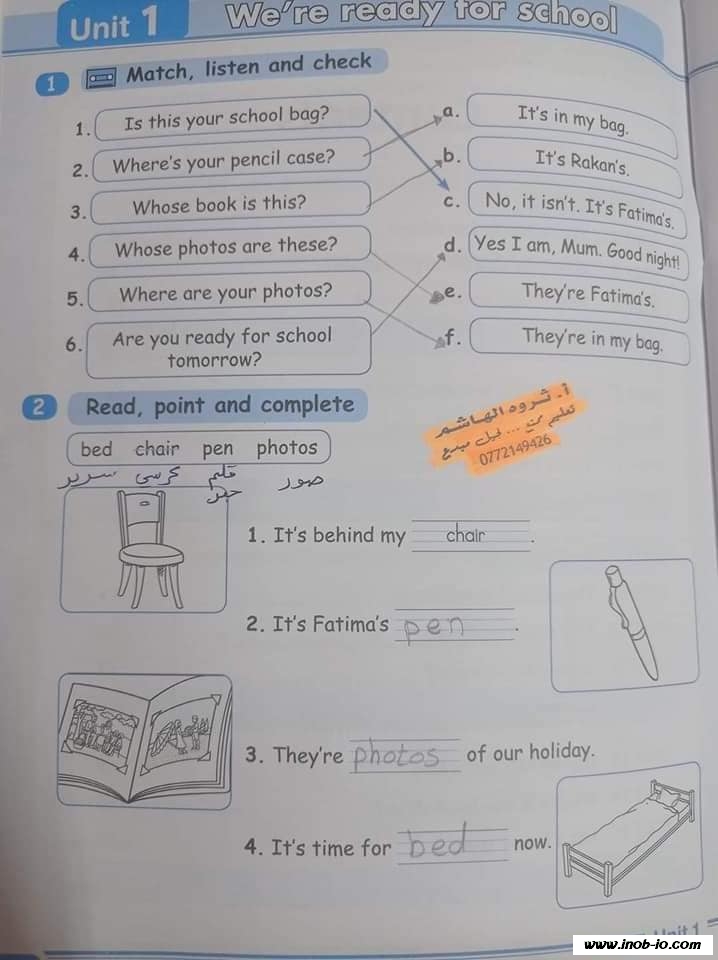 Unit 1 We're ready for school
1 Match, listen and check
1. Is this your school bag?
2. Where's your pencil case?
3. Whose book is this?
4. Whose photos are these?
5. Where are your photos?
6. Are you ready for school tomorrow?
a. It's in my bag.
b. It's Rakan's.
c. No, it isn't. It's Fatima's.
d. Yes I am, Mum. Good night!
e. They're Fatima's.
f. They're in my bag.
2 Read, point and complete
أ. ثروه الهاشم
0772149426
bed chair pen photos
سرير كرسي قلم صور
حبر
1. It's behind my chair.
2. It's Fatima's pen.
3. They're photos of our holiday.
4. It's time for bed now.
Unit 1
www.inob-io.com